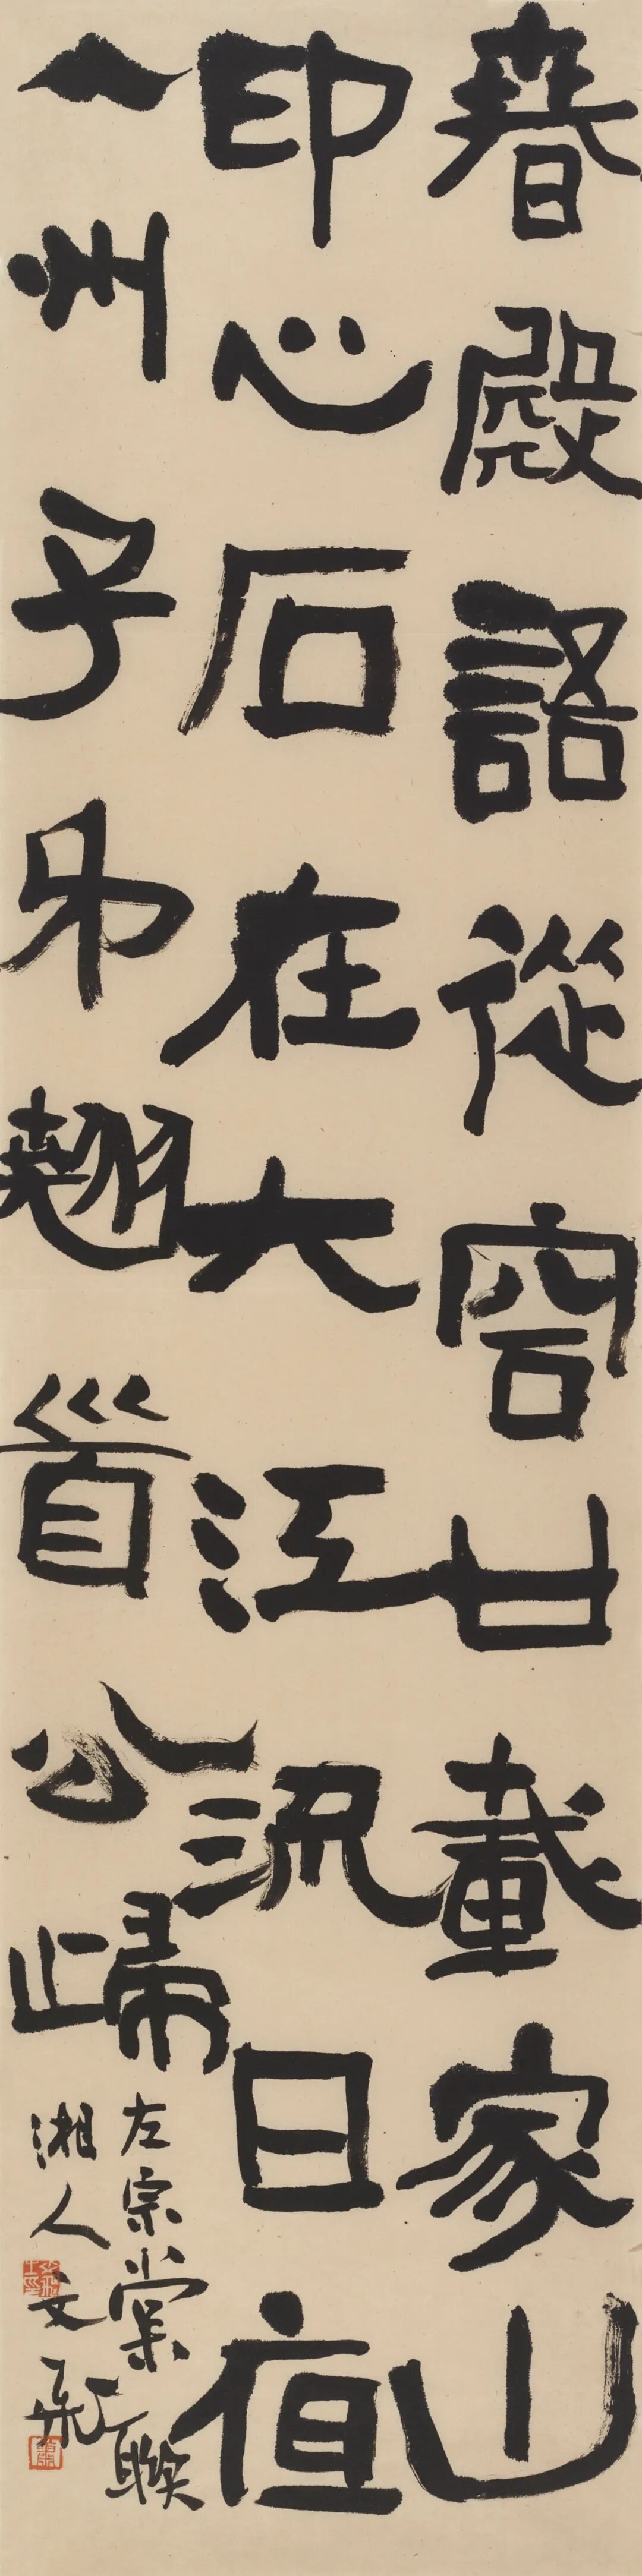 春殿語從容廿載家山
印心石在大江流日夜
八州子弟翹首公歸
左宗棠聯
湘人文